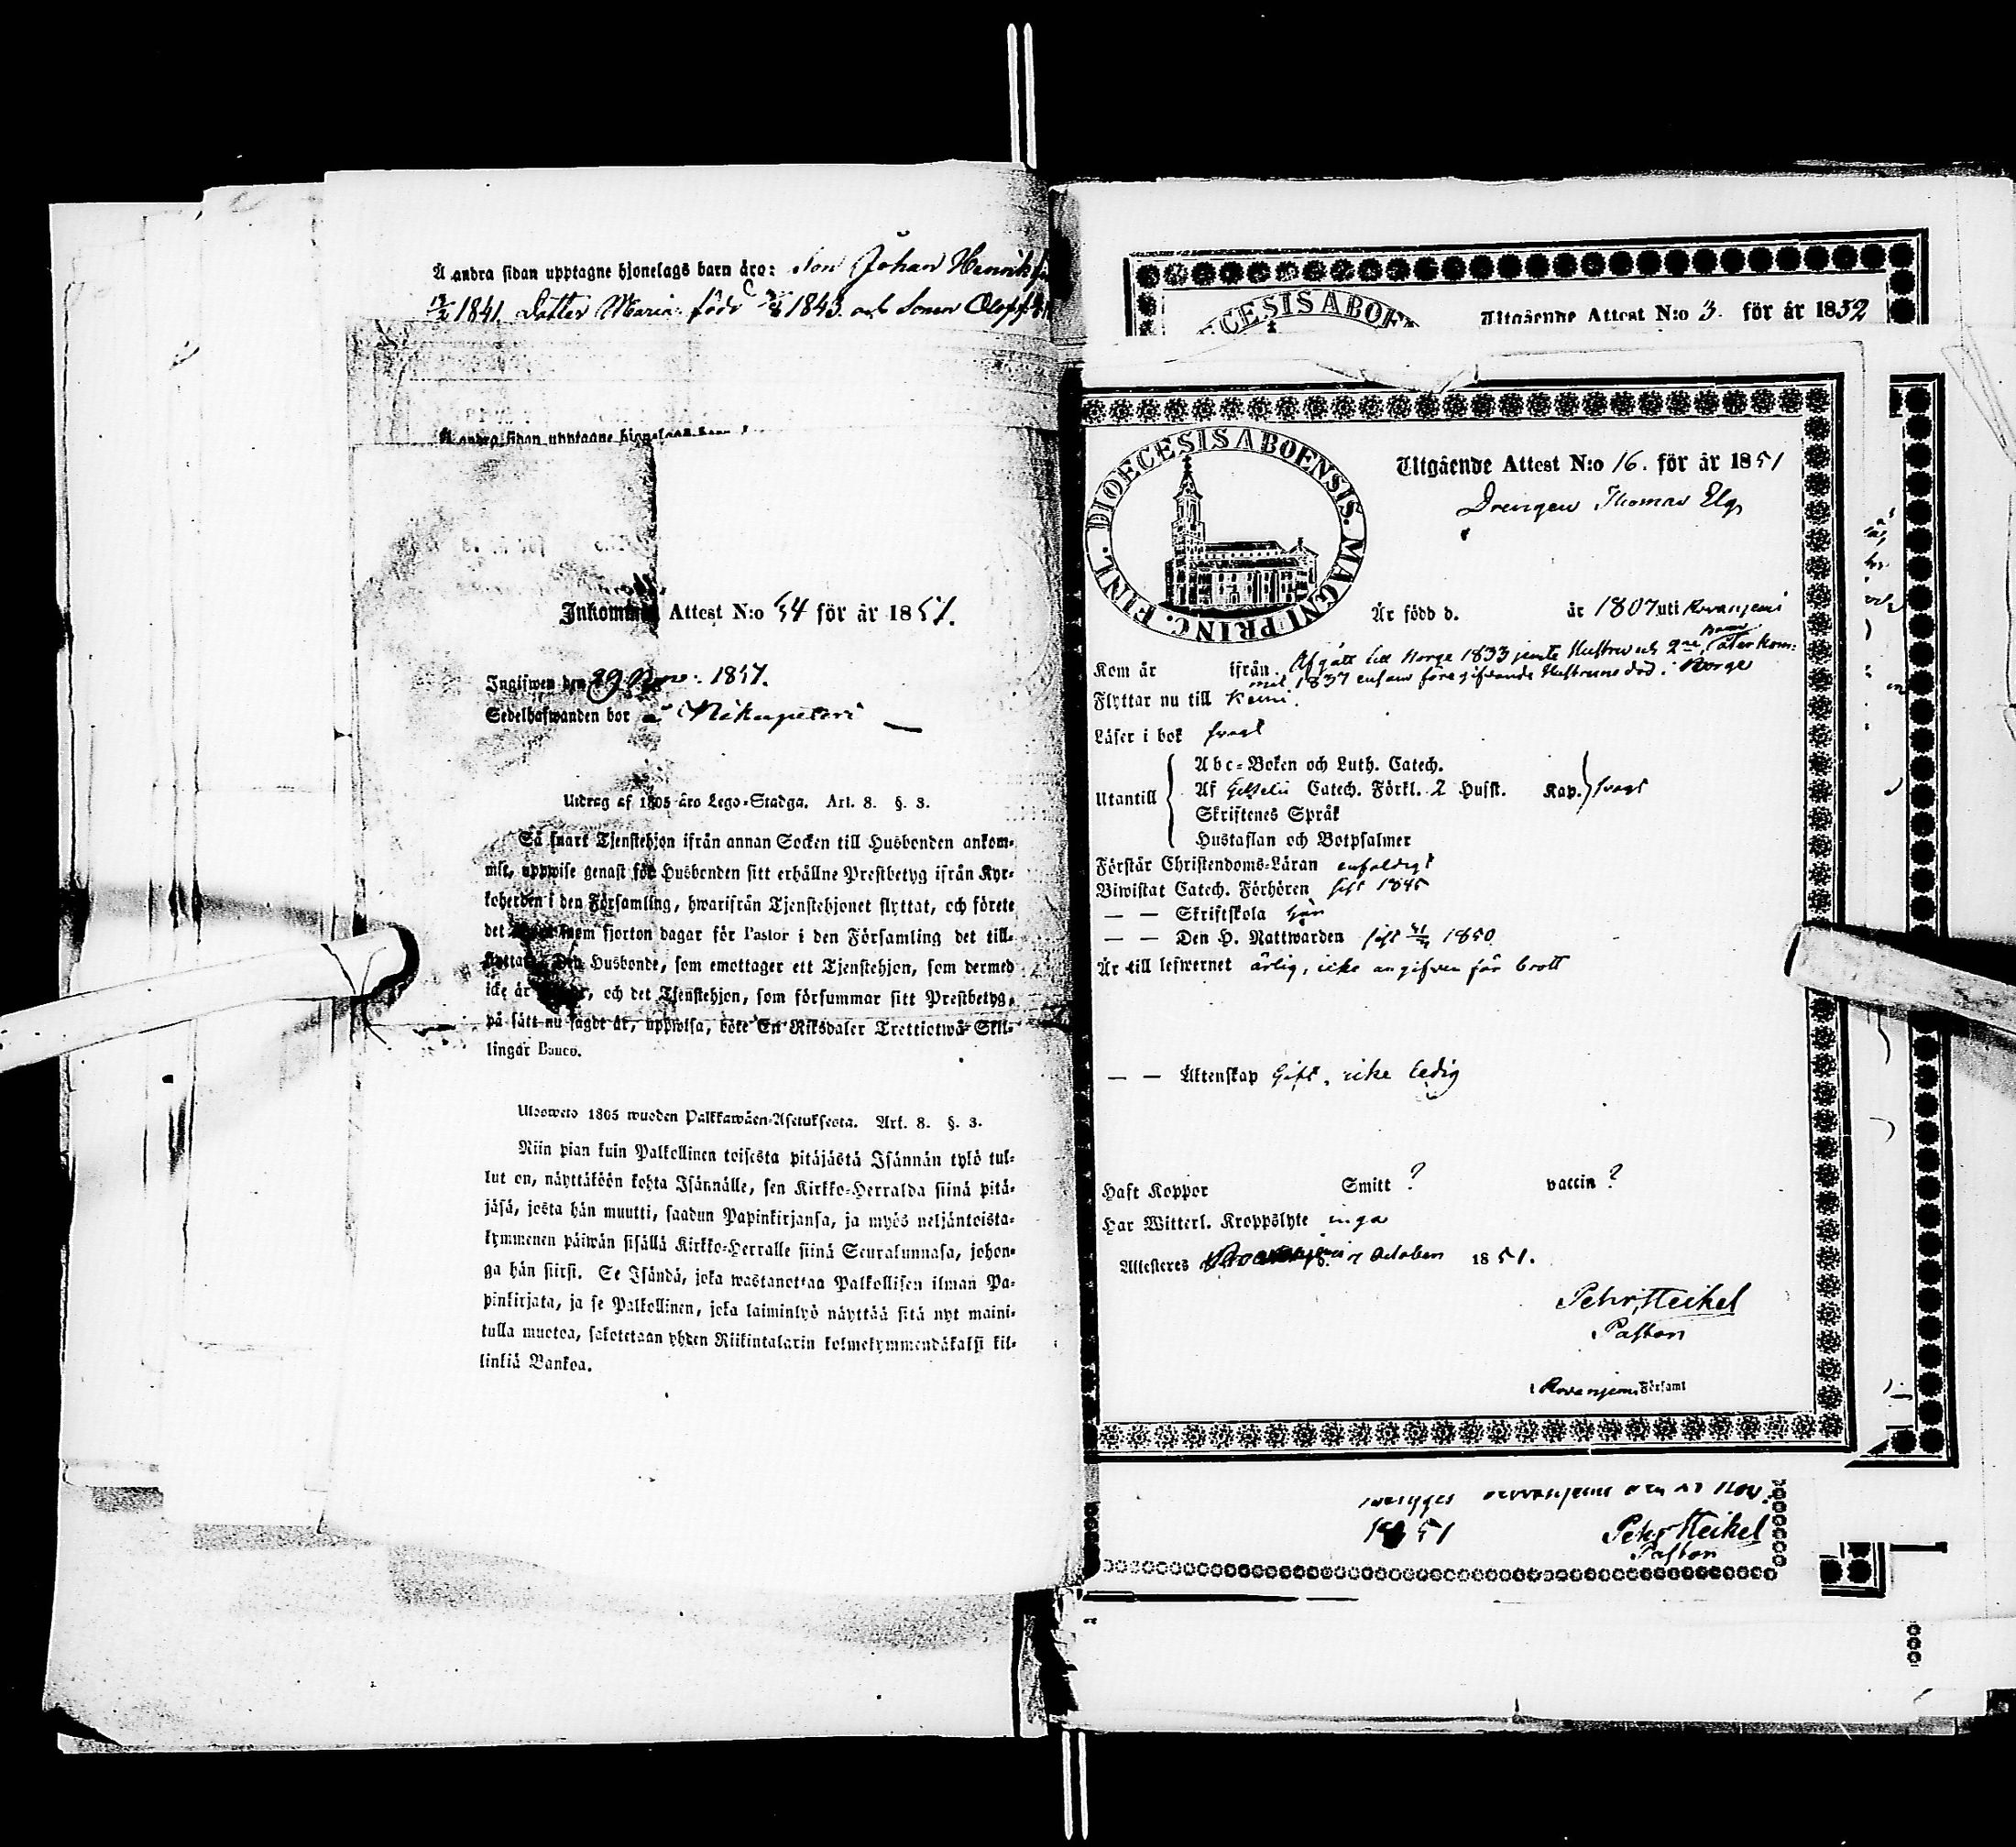 Å andra sidan upptagne hjonelags barn äro: Son Johan Henrik
1841. Dotter Maria född 1843. och Sonen Olof
Å andra sidan upptagne hjonelags barn
Inkommen Attest N:o 54 för år 1851.
Ingifwen den 29 Nov. 1851.
Sedelhafwanden bor
Utdrag af 1805 åro Lego-Stadga. Art. 8. §. 3.
Så snart Tjenstehjon ifrån annan Socken till Husbonden ankom-
mit, uppwise genast för Husbonden sitt erhållne Prestbetyg ifrån Kyr-
koherden i den Församling, hwarifrån Tjenstehjonet flyttat, och förete
det inom fjorton dagar för Pastor i den Församling det till-
flyttat. Den Husbonde, som emottager ett Tjenstehjon, som dermed
icke är, och det Tjenstehjon, som försummar sitt Prestbetyg,
på sätt nu sagdt är, uppwisa, böte En Riksdaler Trettiotwå Skil-
lingar Banco.
Ulosweto 1805 wuoden Palkkawäen-Asetuksesta. Art. 8. §. 3.
Niin pian kuin Palkollinen toisesta pitäjästä Isännän tylö tul-
lut on, näyttäköön kohta Isännälle, sen Kirkko-Herralda siinä pitä-
jäsä, josta hän muutti, saadun Papinkirjansa, ja myös neljäntoista-
kymmenen päiwän sisällä Kirkko-Herralle siinä Seurakunnasa, johon-
ga hän siirsi. Se Isändä, joka wastanottaa Palkollisen ilman Pa-
pinkirjata, ja se Palkollinen, joka laiminlyö näyttää sitä nyt maini-
tulla muotoa, sakotetaan yhden Riikintalarin kolmekymmendäkaksi kil-
linkiä Bankoa.
CESIS ABOEN
Utgående Attest N:o 3. för år 1852
DIOECESIS ABOENSIS. MAGNI PRINC. FINL.
Utgående Attest N:o 16. för år 1851
Drengen Thomas Elg
Är född d. år 1807 uti Rovanjemi
Kom år ifrån Afgått till Norge 1833 jemte Hustru och 2ne barn, återkom-
mit 1837 ensam föregifvande Hustruns död i Norge
Flyttar nu till Kemi.
Läser i bok svagt
Utantill
Abc-Boken och Luth. Catech.
Af Gezelii Catech. Förkl. 2 Hufst. Kap. svagt
Skriftenes Språk
Hustaflan och Botpsalmer
Förstår Christendoms-Läran enfaldigt
Biwistat Catech. Förhören sist 1845
— — Skriftskola här
— — Den H. Nattwarden sist 1850
Är till lefwernet ärlig, icke angifven för brott
— — Äktenskap Gift, icke ledig
Haft Koppor Smitt ? vaccin ?
Har Witterl. Kroppslyte inga
Attesteres Rovanjemi d. 7 October 1851.
Pehr Heikel
Pastor
i Rovanjemi Församl
Nov.
1851 Pehr Heikel
Pastor